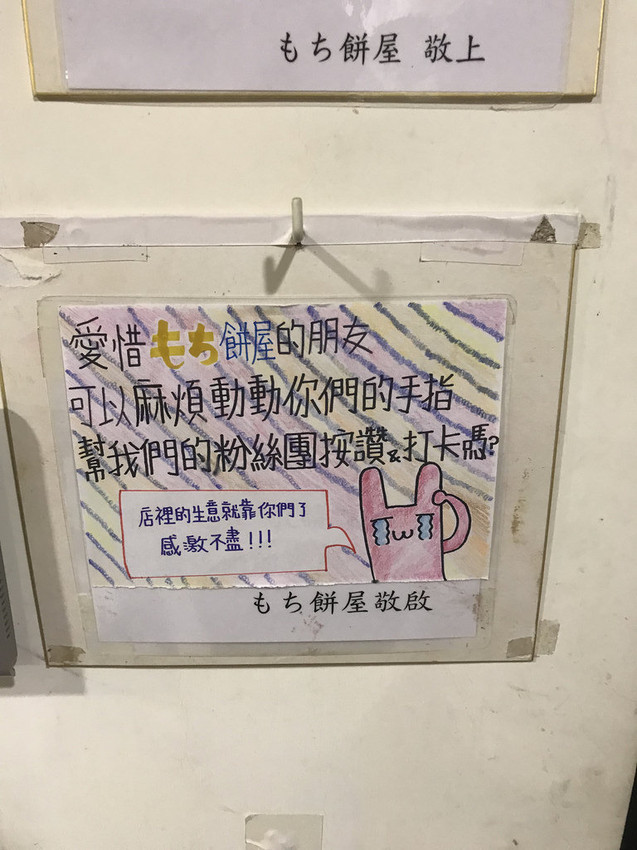 もち餅屋 敬上
愛惜もち餅屋的朋友
可以麻煩動動你們的手指
幫我們的粉絲團按讚&打卡嗎?
店裡的生意就靠你們了
感激不盡!!!
もち餅屋敬啟